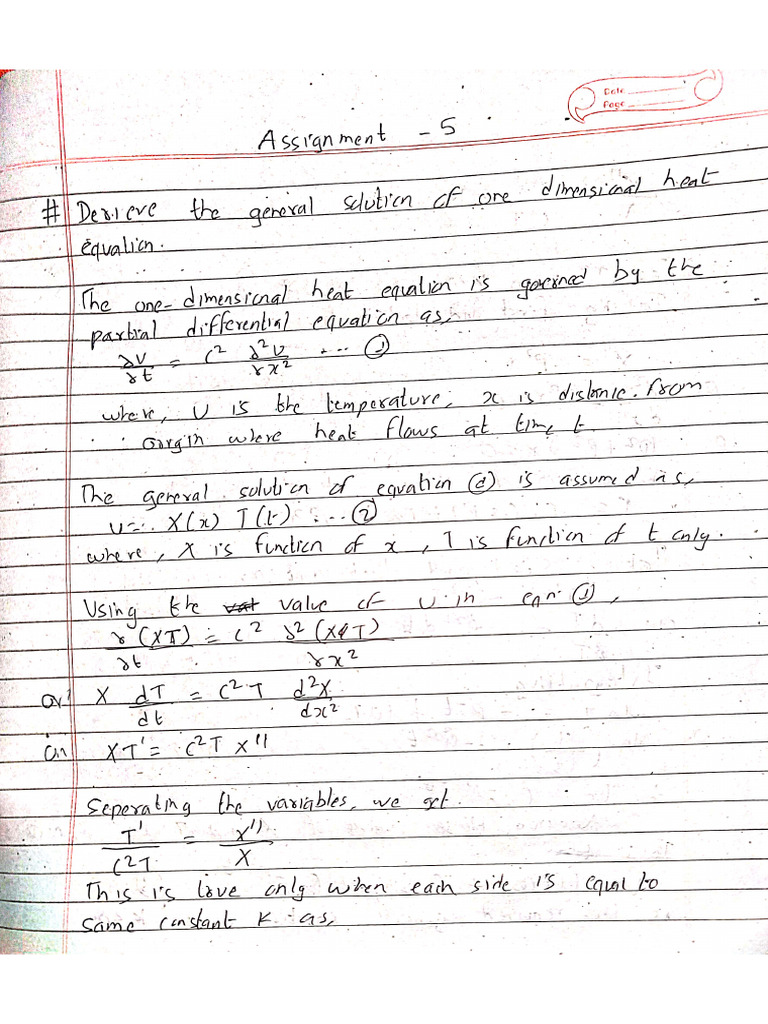 Date
Page
Assignment - 5
# Derieve the general solution of one dimensional heat
equation.
The one-dimensional heat equation is governed by the
partial differential equation as,
∂U/∂t = C² ∂²U/∂x² ... ①
where, U is the temperature, x is distance from
origin where heat flows at time t.
The general solution of equation ① is assumed as,
U = X(x) T(t) ... ②
where, X is function of x, T is function of t only.
Using the value of U in eqn. ①,
∂(XT)/∂t = C² ∂²(XT)/∂x²
or, X dT/dt = C²T d²X/dx²
or, XT' = C²T X''
Seperating the variables, we get.
T'/C²T = X''/X
This is true only when each side is equal to
same constant K as,